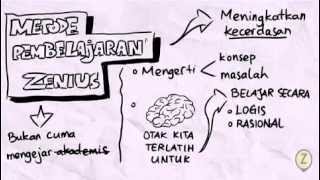 METODE
PEMBELAJARAN
ZENIUS
Meningkatkan
kecerdasan
Mengerti
konsep
masalah
Bukan cuma
mengejar akademis
OTAK KITA
TERLATIH
UNTUK
BELAJAR SECARA
LOGIS
RASIONAL
Z